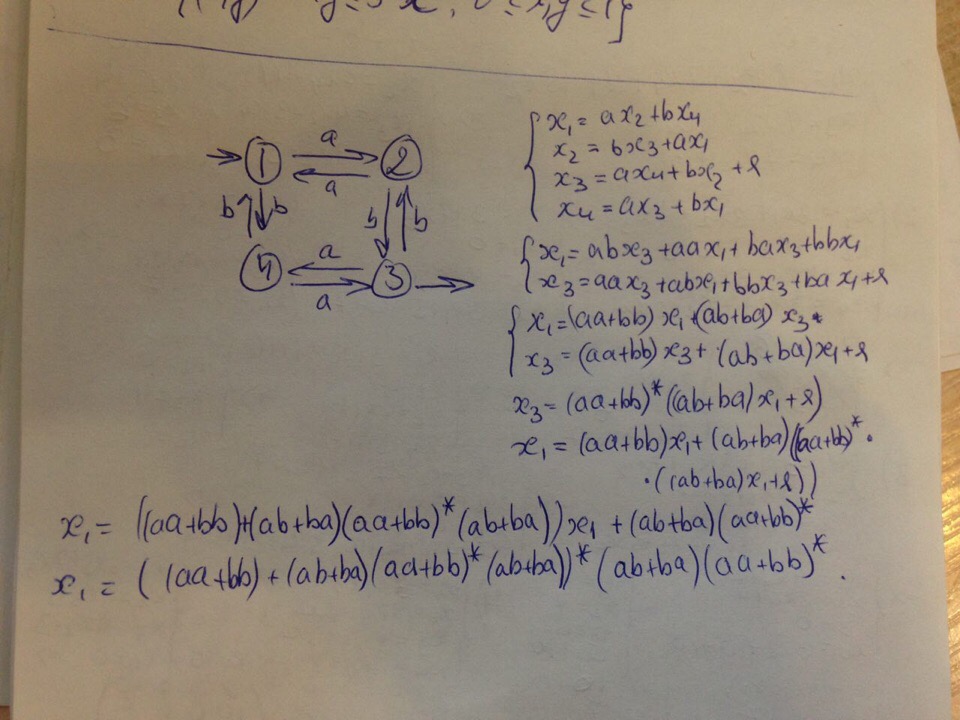 y ≤ 3x, 0 ≤ x, y ≤ 1}
1 a 2
a
b b b b
a
4 3
a
x₁ = ax₂ + bx₄
x₂ = bx₃ + ax₁
x₃ = ax₄ + bx₂ + λ
x₄ = ax₃ + bx₁
x₁ = abx₃ + aax₁ + bax₃ + bbx₁
x₃ = aax₃ + abx₁ + bbx₃ + bax₁ + λ
x₁ = (aa+bb)x₁ + (ab+ba)x₃
x₃ = (aa+bb)x₃ + (ab+ba)x₁ + λ
x₃ = (aa+bb)*((ab+ba)x₁ + λ)
x₁ = (aa+bb)x₁ + (ab+ba)((aa+bb)* ·
· ((ab+ba)x₁ + λ))
x₁ = ((aa+bb)+(ab+ba)(aa+bb)*(ab+ba))x₁ + (ab+ba)(aa+bb)*
x₁ = ((aa+bb)+(ab+ba)(aa+bb)*(ab+ba))*(ab+ba)(aa+bb)*.